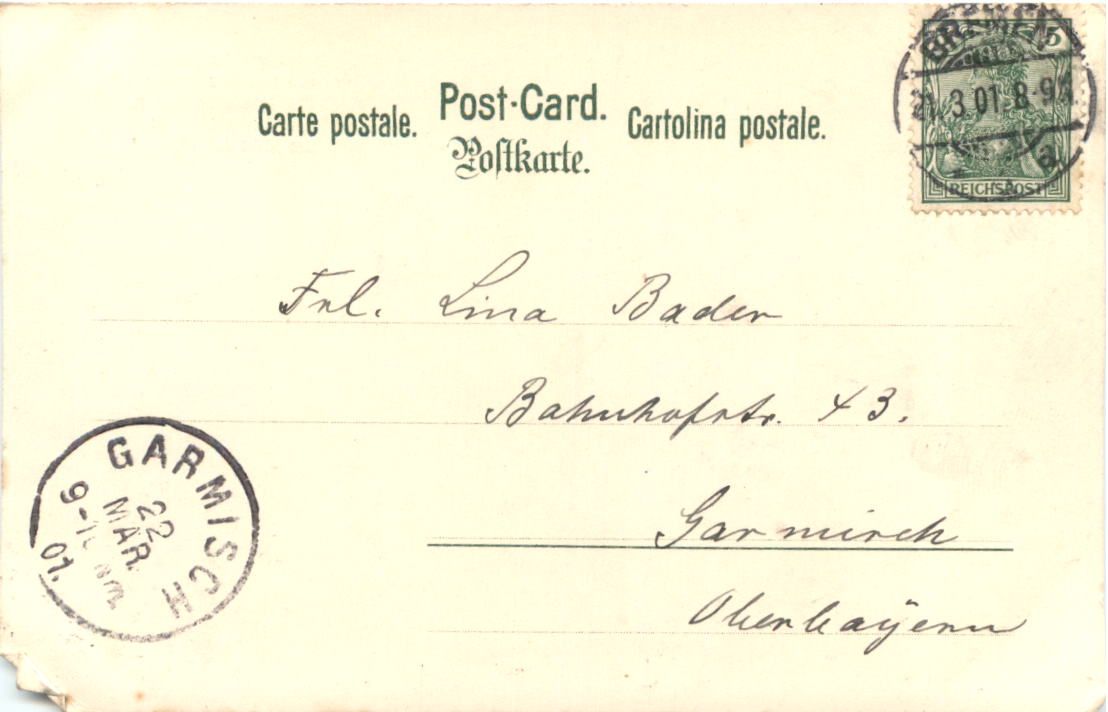 Carte postale. Post-Card. Cartolina postale.
Postkarte.
BREMEN
5
21.3.01.8-9N.
a
REICHSPOST
Frl. Lina Bader
Bahnhofstr. 43.
Garmisch
Oberbayern
GARMISCH
22
MAR.
01.